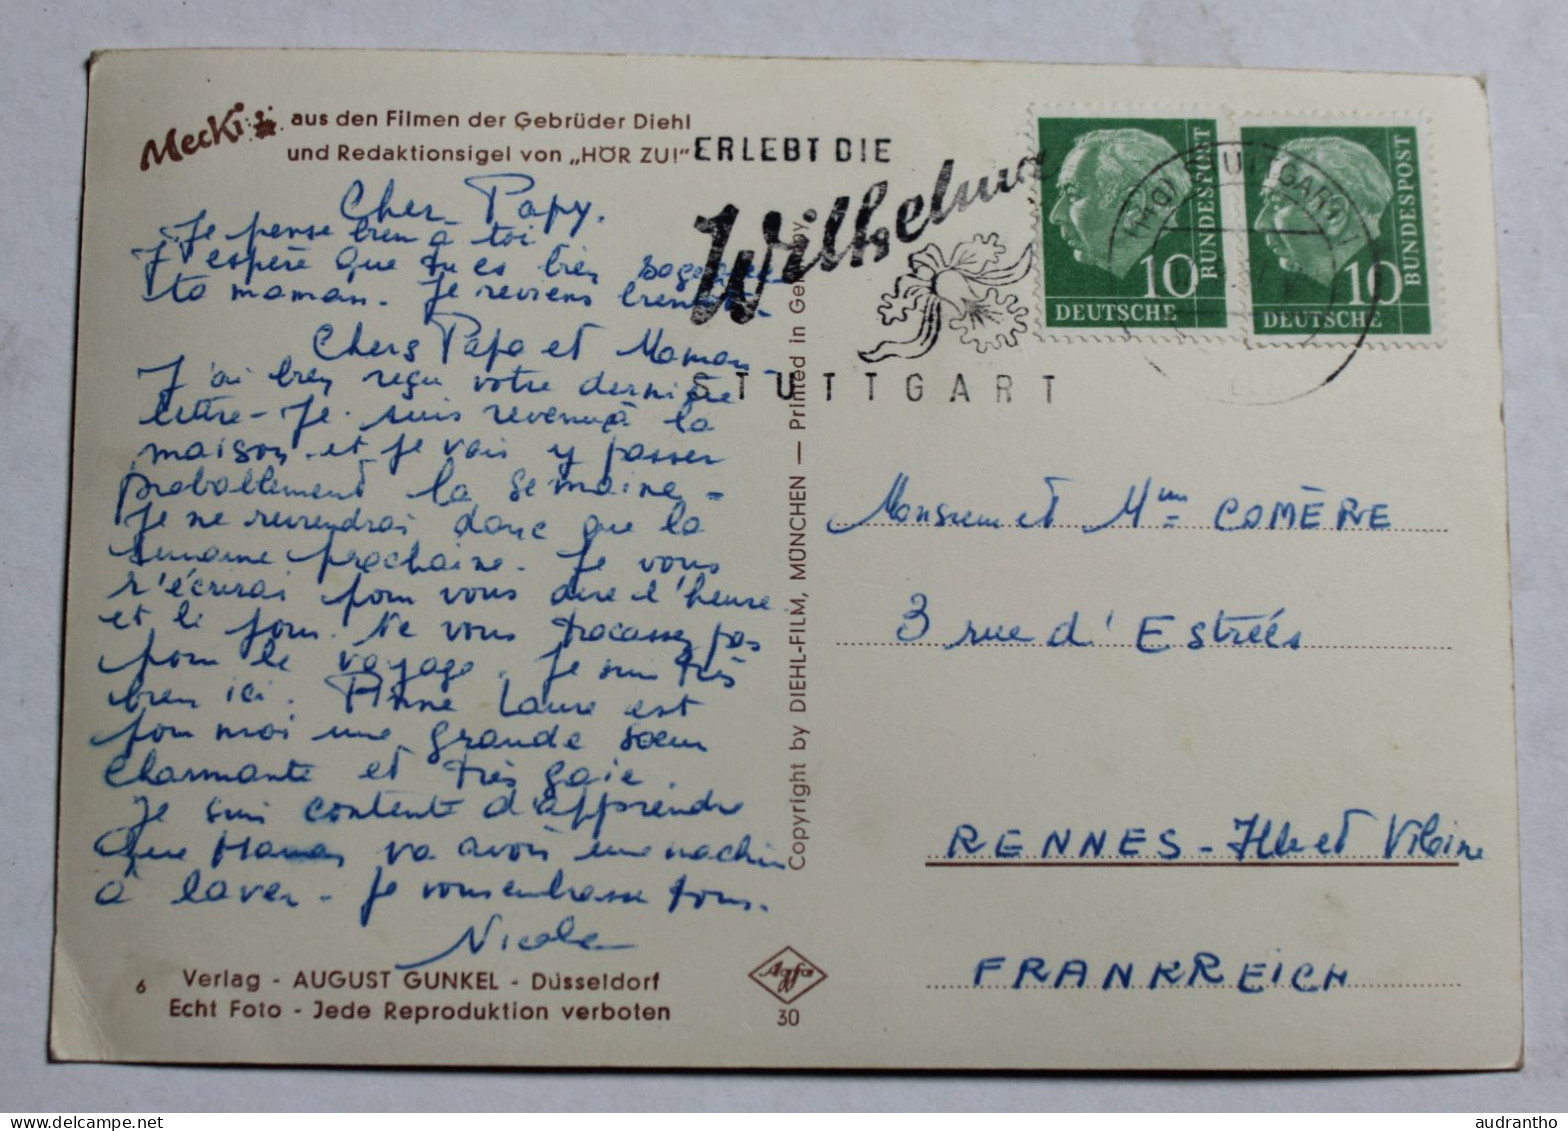 Mecki aus den Filmen der Gebrüder Diehl
und Redaktionsigel von „HÖR ZU!"
Cher Papy.
Je pense bien à toi
J'espère que tu es bien
ta maman. Je reviens
Chers Papa et Maman
J'ai bien reçu votre dernière
lettre - Je suis revenue à la
maison et je vais y passer
probablement la semaine -
Je ne reviendrai donc que la
semaine prochaine. Je vous
r'écrirai pour vous dire l'heure
et le jour. Ne vous tracassez pas
pour le voyage. Je suis très
bien ici. Anne Laure est
pour moi une grande soeur
charmante et très gaie.
Je suis contente d'apprendre
que Maman va avoir une machine
à laver - Je vous embrasse tous.
Nicole
6 Verlag - AUGUST GUNKEL - Düsseldorf
Echt Foto - Jede Reproduktion verboten
Agfa
30
Copyright by DIEHL-FILM, MÜNCHEN — Printed in Germany
ERLEBT DIE
Wilhelma
STUTTGART
10 DEUTSCHE BUNDESPOST
10 DEUTSCHE BUNDESPOST
Monsieur et Mme COMÈRE
3 rue d'Estrées
RENNES - Ille et Vilaine
FRANKREICH
www.delcampe.net
audrantho